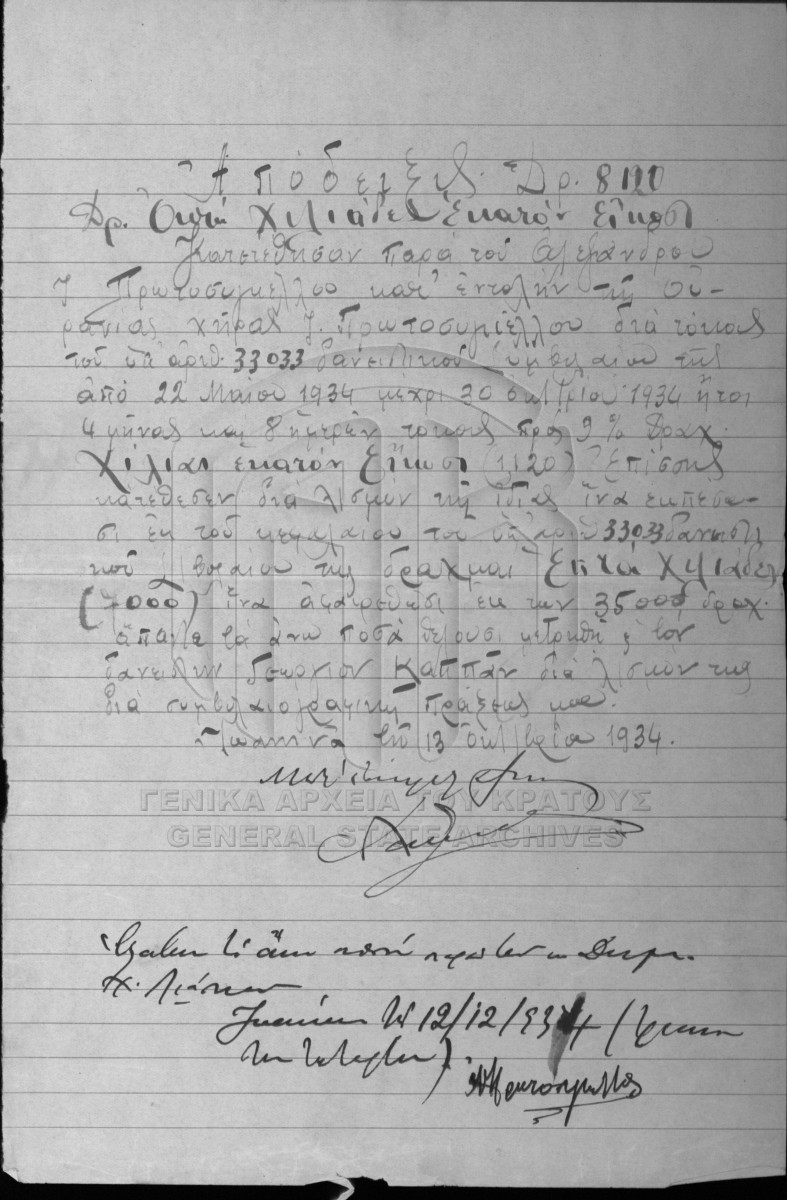 Ἀπόδειξις Δρ. 8120
Δρ. Ὀκτώ Χιλιάδες Ἑκατόν Εἴκοσι
Κατετέθησαν παρά του Αλεξάνδρου
Ι Πρωτοσυγκέλλου κατ' ἐντολήν τῆς Οὐ-
ρανίας χήρας Ι. Πρωτοσυγκέλλου διά τόκους
τοῦ ὑπ' ἀριθ. 33033 δανειστικοῦ συμβολαίου της
ἀπό 22 Μαΐου 1934 μέχρι 30 σεπτ/ρίου 1934 ἤτοι
4 μῆνας και 8 ἡμερῶν τόκους πρός 9 % δραχ.
Χίλιαι ἑκατόν Εἴκοσι (1120) Ἐπίσης
κατέθεσεν διά λ/σμόν τῆς ἰδίας ἵνα εκπέσω-
σι ἐκ τοῦ κεφαλαίου τοῦ ὑπ' ἀριθ 33033 δανειστι
κοῦ συμβολαίου της δραχμαί Ἑπτά Χιλιάδες
(7000) ἵνα ἀφαιρεθῶσι ἐκ των 35000 δραχ.
ἅπαντα τά ἄνω ποσά θέλουσι μετρηθῆ εἰς τόν
δανειστήν Γεώργιον Καππᾶν διά λ/σμόν της
διά συμβολαιογραφικῆς πράξεως μου.
Ἰωάννινα τῇ 13 Ὀκτωβρίου 1934.
ΓΕΝΙΚΑ ΑΡΧΕΙΑ ΤΟΥ ΚΡΑΤΟΥΣ
GENERAL STATE ARCHIVES
Ἔλαβον τό ἄνω ποσόν
Ἰωάννινα τῇ 12/12/934
την Τετάρτην)